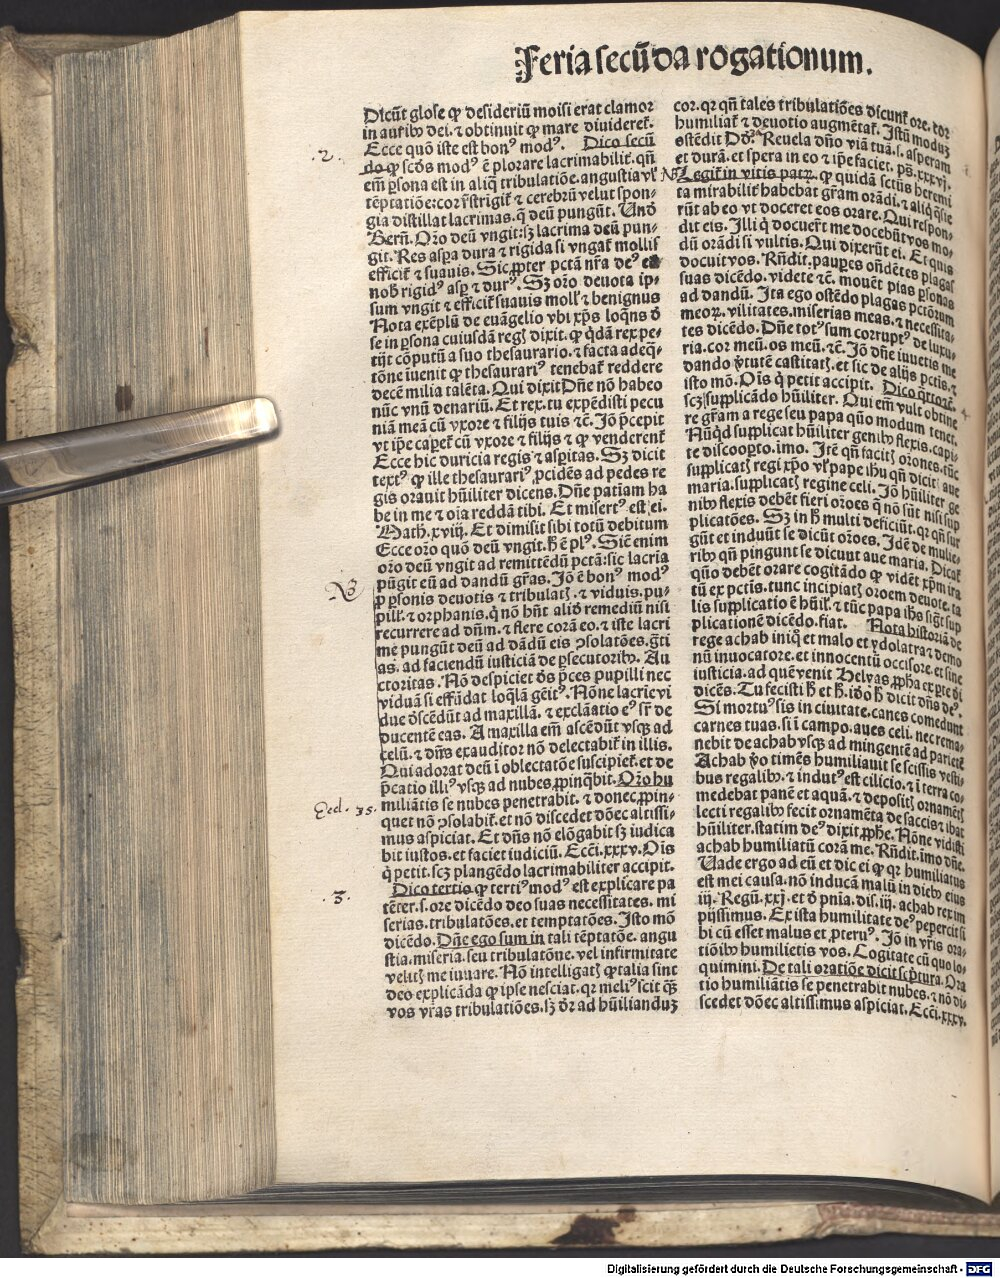 Feria secūda rogationum.
Dicūt glose ꝙ desideriū moisi erat clamor
in aurib⁹ dei. ⁊ obtinuit ꝙ mare diuideret̄.
Ecce quō iste est bon⁹ mod⁹. Dico secū
.2.
do ꝙ scōs mod⁹ ē plorare lacrimabilit̄. qn̄
em̄ ꝑsona est in aliq̄ tribulatiōe. angustia vl̓
tēptatiōe: cor r̄strigit̄ ⁊ cerebrū velut spon-
gia distillat lacrimas. q̄ deū pungūt. Unō
Bern̄. Or̄o deū vngit: sꝫ lacrima deū pun-
git. Res asꝑa dura ⁊ rigida si vngat̄ mollis
efficit̄ ⁊ suauis. Sic ꝓpter pctā nr̄a de⁹ e
nob̄ rigid⁹ asꝑ ⁊ dur⁹. Sꝫ or̄o deuota ip-
sum vngit ⁊ efficit̄ suauis moll̓ ⁊ benignus
Nota exēplū de euāgelio vbi xp̄s loq̄ns d̄
se in ꝑsona cuiusdā regꝭ dixit. ꝙ q̄dā rex pe-
tijt cōputū a suo thesaurario. ⁊ facta adeq̄-
tōne iuenit ꝙ thesaurari⁹ tenebat̄ reddere
decē milia talēta. Qui dixit Dn̄e nō habeo
nūc vnū denariū. Et rex. tu expēdisti pecu
niā meā cū vxore ⁊ filijs tuis ⁊c̄. Jō p̄cepit
vt ip̄e caꝑet̄ cū vxore ⁊ filijs ⁊ ꝙ venderent̄
Ecce hic duricia regis ⁊ aspitas. Sꝫ dicit
text⁹ ꝙ ille thesaurari⁹ ꝓcidēs ad pedes re
gis orauit hūiliter dicens. Dn̄e patiam ha
be in me ⁊ oīa reddā tibi. Et misert⁹ est ei.
Math̓. xviij. Et dimisit sibi totū debitum
Ecce or̄o quō deū vngit. h̄ ē pl⁹. Sic̄ enim
or̄o deū vngit ad remittēdū pctā: sic lacria
pūgit eū ad dandū gr̄as. Jō ē bon⁹ mod⁹
ꝓ ꝑsonis deuotis ⁊ tribulatꝭ. ⁊ viduis. pu-
pill̓. ⁊ orphanis. q̄ nō hn̄t aliō remediū nisi
recurrere ad dn̄m. ⁊ flere corā eo. ⁊ iste lacri
me pungūt deū ad dādū eis ꝯsolatōes. gr̄ti
as. ad faciendū iusticiā de ꝑsecutorib⁹. Au
ctoritas. Nō despiciet d̄s p̄ces pupilli nec
viduā si effūdat loq̄lā gēit⁹. Nōne lacrie vi
due d̄scēdūt ad maxillā. ⁊ exclāatio e⁹ sr̄ de
ducentē eas. A maxilla em̄ ascēdūt vsqꝫ ad
celū. ⁊ dn̄s exauditor nō delectabit̄ in illis.
Qui adorat deū ī oblectatōe suscipiet̄. et de
p̄catio illi⁹ vsqꝫ ad nubes ꝓpinq̄bit. Or̄o hu
Eccl. 35.
miliātis se nubes penetrabit. ⁊ donec ꝓpin-
quet nō ꝯsolabit̄. et nō discedet dōec altissi-
mus aspiciat. Et dn̄s nō elōgabit sꝫ iudica
bit iustos. et faciet iudiciū. Ecci̓. xxxv. Oīs
q̄ petit. scꝫ plangēdo lacrimabiliter accipit.
.3.
Dico tertio ꝙ terti⁹ mod⁹ est explicare pa
tēter. s. ore dicēdo deo suas necessitates. mi
serias. tribulatōes. et temptatōes. Jsto mō
dicēdo. Dn̄e ego sum in tali tēptatōe. angu
stia. miseria. seu tribulatōne. vel infirmitate
velitꝭ me iuuare. Nō intelligatꝭ ꝙ talia sint
deo explicāda ꝙ ipse nesciat. qꝛ meli⁹ scit qꝫ
vos vr̄as tribulatiōes. sꝫ d̄r ad hūilianduꝫ
cor. qꝛ qn̄ tales tribulatiōes dicunt̄ ore. cor
humiliat̄ ⁊ deuotio augmētat̄. Jstū moduꝫ
ostēdit Dd̄. Reuela dn̄o viā tuā. s. asperam
et durā. et spera in eo ⁊ ip̄e faciet. ps̄. xxxvj.
Legit̄ in vitis patꝝ. ꝙ quidā sctūs heremi
ta mirabilit̄ habebat gr̄am orādi. ⁊ aliq̄ q̄sie
rūt ab eo vt doceret eos orare. Qui respon-
dit eis. Jlli q̄ docuer̄t me docebūt vos mo-
dū orādi si vultis. Qui dixerūt ei. Et quis
docuit vos. Rn̄dit. pauꝑes on̄dētes plagas
suas dicēdo. videte ⁊c̄. mouēt pias ꝑsonas
ad dandū. Jta ego ostēdo plagas pctōrum
meoꝝ. vilitates. miserias meas. ⁊ necessita-
tes dicēdo. Dn̄e tot⁹ sum corrupt⁹ de luxu-
ria. cor meū. os meū. ⁊c̄. Jō dn̄e iuuetis me
dando v̓tutē castitatꝭ. et sic de alijs pctis. ⁊
isto mō. Oīs q̄ petit accipit. Dico q̄rto ꝙ.
4.
scꝫ supplicādo hūiliter. Qui em̄ vult obtine
re gr̄am a rege seu papa quō modum tenet.
Nūqd̄ supplicat hūiliter genib⁹ flexis. capi-
te discooꝑto. imo. Jtē qn̄ facitꝭ or̄ones. tūc
supplicatꝭ regi xp̄o vl̓ pape ihū qn̄ dicit̄ aue
maria. supplicatꝭ regine celi. Jō hūiliter ge
nib⁹ flexis debēt fieri or̄oes q̄ nō sūt nisi sup
plicatōes. Sꝫ in h̄ multi deficiūt. qꝛ qn̄ sur
gūt et induūt se dicūt or̄oes. Jdē de mulie-
rib⁹ qn̄ pingunt se dicunt aue maria. Dicat̄
quō debēt orare cogitādo ꝙ vidēt xp̄m ira
tū ex pctis. tunc incipiatꝭ or̄oem deuote. ta
lis supplicatio ē hūil̓. ⁊ tūc papa ihs̄ sigt̄ sup
plicationē dicēdo. fiat. Nota historiā de
rege achab iniq̄ et malo et ydolatra ⁊ demo
nū inuocatore. et innocentū occisore. et sine
iusticia. ad quē venit Helyas ꝓpha ex ꝑte dī
dicēs. Tu fecisti h̄ et h̄. idō h̄ dicit dn̄s de⁹.
Si mortu⁹ sis in ciuitate. canes comedunt
carnes tuas. si ī campo. aues celi. nec rema-
nebit de achab vsqꝫ ad mingentē ad parietē
Achab v̓o timēs humiliauit se scissis vesti-
bus regalib⁹. ⁊ indut⁹ est cilicio. ⁊ ī terra co-
medebat panē et aquā. ⁊ depositꝭ ornamētꝭ
lecti regalib⁹ fecit ornamēta de saccis ⁊ ibat
hūiliter. statim de⁹ dixit ꝓphe. Nōne vidisti
achab humiliatū corā me. Rn̄dit. imo dn̄e.
Uade ergo ad eū et dic ei ꝙ qꝛ humiliatus
est mei causa. nō inducā malū in dieb⁹ eius
iij. Regū. xxj. et d̄ pnīa. dis. iij. achab rex im
pijssimus. Ex ista humilitate de⁹ pepercit si
bi cū esset malus et ꝓteru⁹. Jō in vr̄is ora-
tiōib⁹ humilietis vos. Cogitate cū quo lo-
quimini. De tali oratiōe dicit scp̄tura. Ora
tio humiliātis se penetrabit nubes. ⁊ nō di-
scedet dōec altissimus aspiciat. Ecci̓. xxxv.
Digitalisierung gefördert durch die Deutsche Forschungsgemeinschaft - DFG